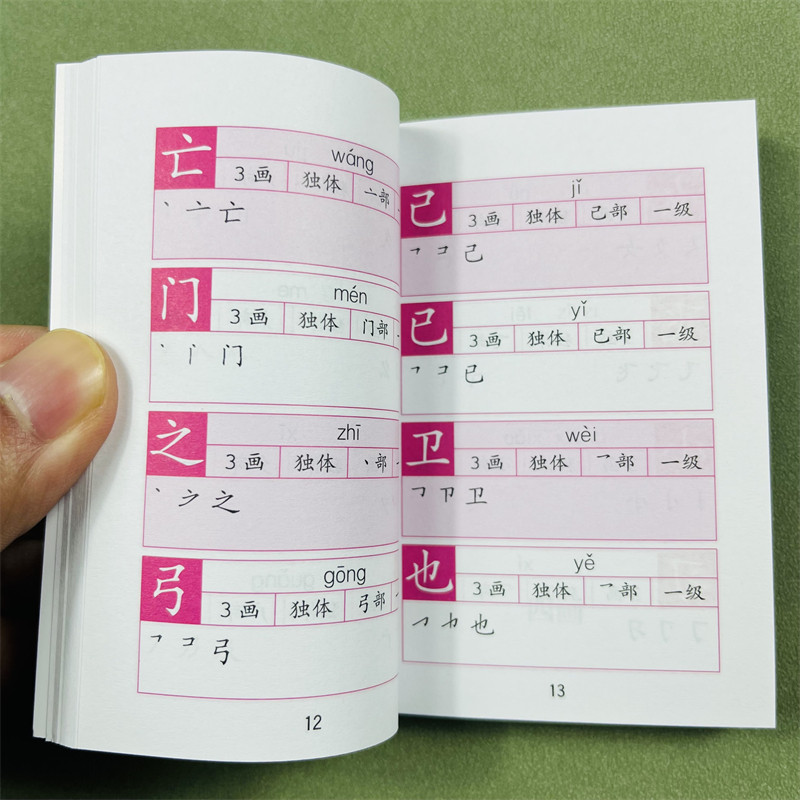 亡 wáng
3画 独体 亠部
丶 亠 亡
门 mén
3画 独体 门部
丶 门
之 zhī
3画 独体 丶部
丶 之
弓 gōng
3画 独体 弓部
㇕ コ 弓
12
己 jǐ
3画 独体 己部 一级
㇕ コ 己
已 yǐ
3画 独体 已部 一级
㇕ コ 已
卫 wèi
3画 独体 乛部 一级
㇆ 卩 卫
也 yě
3画 独体 乛部 一级
㇆ 也
13